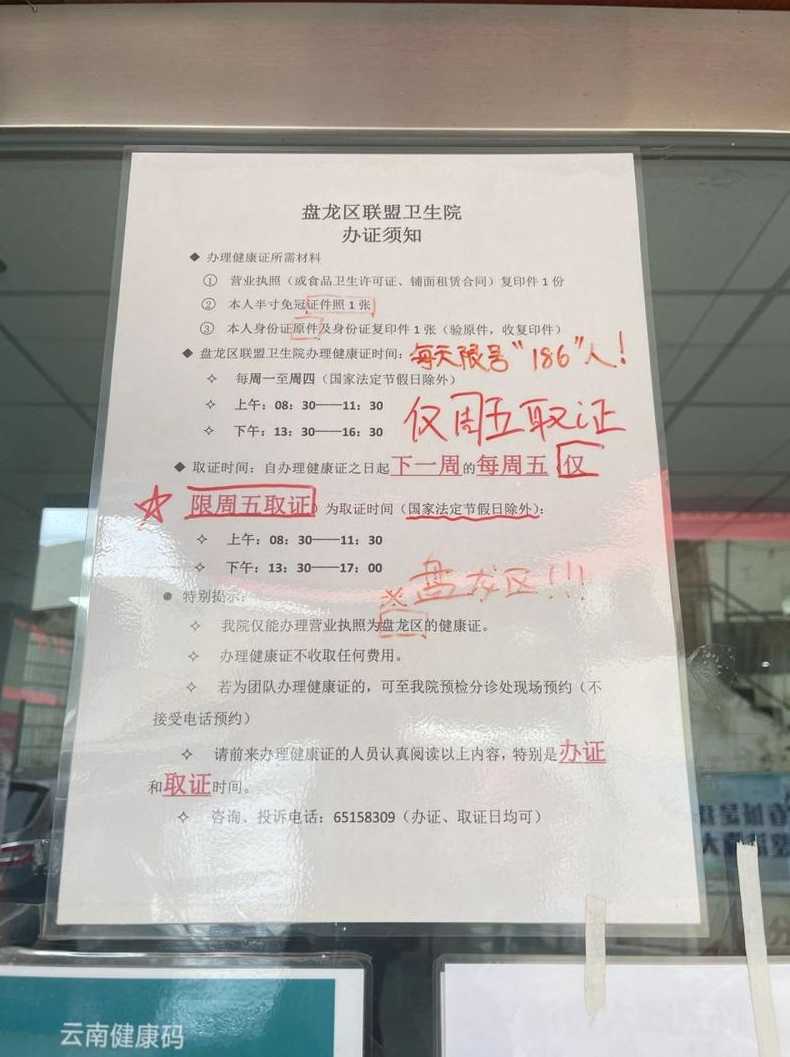 盘龙区联盟卫生院
办证须知
◆ 办理健康证所需材料
① 营业执照（或食品卫生许可证、铺面租赁合同）复印件1份
② 本人半寸免冠证件照1张
③ 本人身份证原件及身份证复印件1张（验原件，收复印件）
◆ 盘龙区联盟卫生院办理健康证时间：每天限号“186”人！
✧ 每周一至周四（国家法定节假日除外）
✧ 上午：08：30——11：30
✧ 下午：13：30——16：30
仅周五取证
◆ 取证时间：自办理健康证之日起下一周的每周五（仅
☆ 限周五取证）为取证时间（国家法定节假日除外）：
✧ 上午：08：30——11：30
✧ 下午：13：30——17：00
※盘龙区!!!
● 特别揭示：
✧ 我院仅能办理营业执照为盘龙区的健康证。
✧ 办理健康证不收取任何费用。
✧ 若为团队办理健康证的，可至我院预检分诊处现场预约（不
接受电话预约）
✧ 请前来办理健康证的人员认真阅读以上内容，特别是办证
和取证时间。
✧ 咨询、投诉电话：65158309（办证、取证日均可）
云南健康码